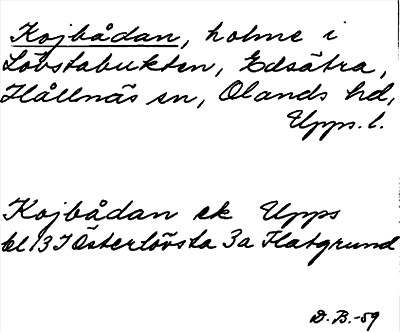 Kojbådan, holme i
Lövstabukten, Edsätra,
Hållnäs sn, Olands hd,
Upps. l.
Kojbådan ek Upps
bl 13 I Österlövsta 3a Flatgrund
D. B. -59